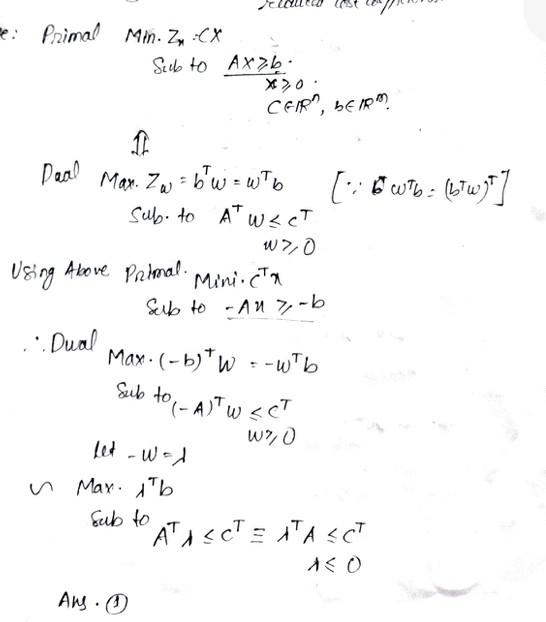 reduced cost coeffi
e: Primal Min. Zx = CX
Sub to AX ≥ b.
x ≥ 0.
C ∈ IRⁿ, b ∈ IRᵐ.
⇕
Dual Max. Zw = bᵀw = wᵀb [∵ wᵀb = (bᵀw)ᵀ]
Sub. to Aᵀ w ≤ cᵀ
w ≥ 0
Using Above Primal. Mini. cᵀx
Sub to -Ax ≥ -b
∴ Dual
Max. (-b)ᵀ w = -wᵀb
Sub to (-A)ᵀ w ≤ cᵀ
w ≥ 0
Let -w = λ
~ Max. λᵀb
Sub to
Aᵀ λ ≤ cᵀ ≡ λᵀA ≤ cᵀ
λ ≤ 0
Ans. ①